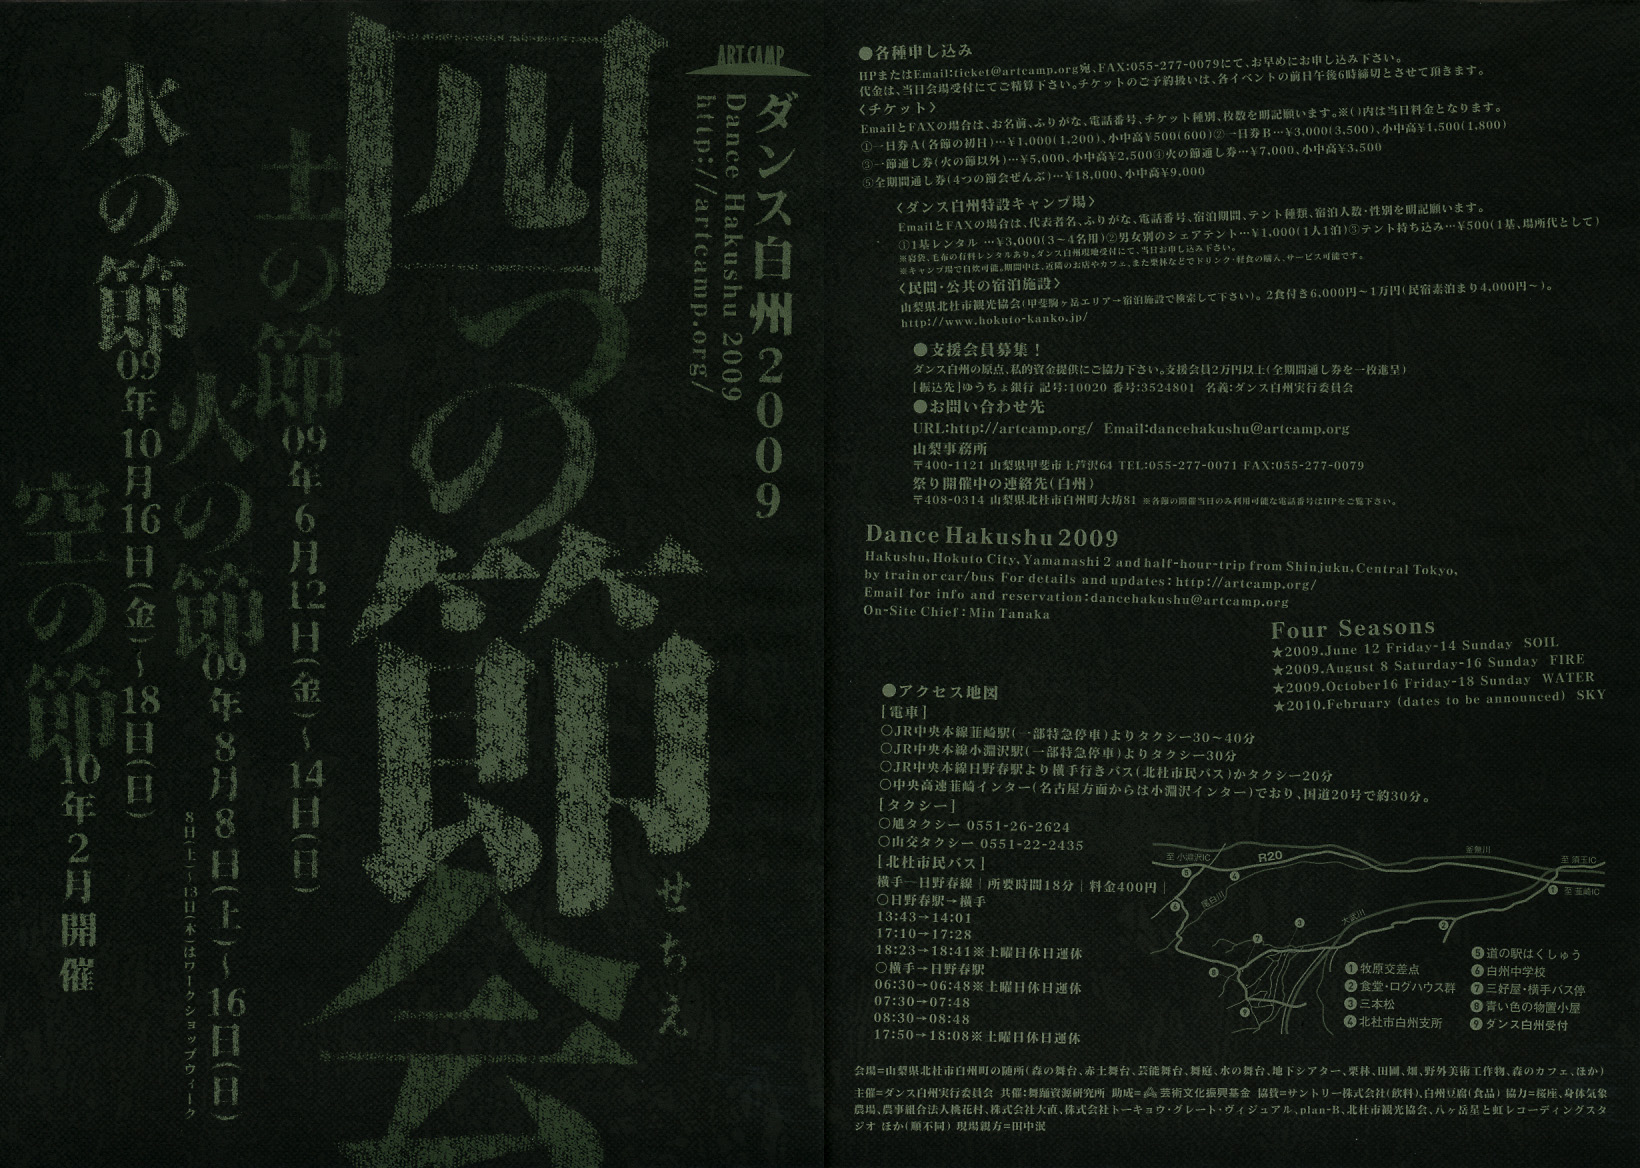 ART CAMP
ダンス白州2009
Dance Hakushu 2009
http://artcamp.org/
四つの節会
せちえ
土の節
09年6月12日(金)～14日(日)
火の節
09年8月8日(土)～16日(日)
8日(土)～13日(木)はワークショップウィーク
水の節
09年10月16日(金)～18日(日)
空の節
10年2月開催
●各種申し込み
HPまたはEmail:ticket@artcamp.org宛、FAX:055-277-0079にて、お早めにお申し込み下さい。
代金は、当日会場受付にてご精算下さい。チケットのご予約扱いは、各イベントの前日午後6時締切とさせて頂きます。
〈チケット〉
EmailとFAXの場合は、お名前、ふりがな、電話番号、チケット種別、枚数を明記願います。※()内は当日料金となります。
①一日券A(各節の初日)…¥1,000(1,200)、小中高¥500(600)②一日券B…¥3,000(3,500)、小中高¥1,500(1,800)
③一節通し券(火の節以外)…¥5,000、小中高¥2,500④火の節通し券…¥7,000、小中高¥3,500
⑤全期間通し券(4つの節会ぜんぶ)…¥18,000、小中高¥9,000
〈ダンス白州特設キャンプ場〉
EmailとFAXの場合は、代表者名、ふりがな、電話番号、宿泊期間、テント種類、宿泊人数・性別を明記願います。
①1基レンタル …¥3,000(3～4名用)②男女別のシェアテント…¥1,000(1人1泊)③テント持ち込み…¥500(1基、場所代として)
※寝袋、毛布の有料レンタルあり。ダンス白州現地受付にて、当日お申し込み下さい。
※キャンプ場で自炊可能。期間中は、近隣のお店やカフェ、また栗林などでドリンク・軽食の購入、サービス可能です。
〈民間・公共の宿泊施設〉
山梨県北杜市観光協会(甲斐駒ヶ岳エリア→宿泊施設で検索して下さい)。2食付き6,000円～1万円(民宿素泊まり4,000円～)。
http://www.hokuto-kanko.jp/
●支援会員募集！
ダンス白州の原点、私的資金提供にご協力下さい。支援会員2万円以上(全期間通し券を一枚進呈)
[振込先]ゆうちょ銀行 記号:10020 番号:3524801 名義:ダンス白州実行委員会
●お問い合わせ先
URL:http://artcamp.org/ Email:dancehakushu@artcamp.org
山梨事務所
〒400-1121 山梨県甲斐市上芦沢64 TEL:055-277-0071 FAX:055-277-0079
祭り開催中の連絡先(白州)
〒408-0314 山梨県北杜市白州町大坊81 ※各節の開催当日のみ利用可能な電話番号はHPをご覧下さい。
Dance Hakushu 2009
Hakushu, Hokuto City, Yamanashi 2 and half-hour-trip from Shinjuku, Central Tokyo,
by train or car/bus For details and updates: http://artcamp.org/
Email for info and reservation:dancehakushu@artcamp.org
On-Site Chief: Min Tanaka
Four Seasons
★2009.June 12 Friday-14 Sunday SOIL
★2009.August 8 Saturday-16 Sunday FIRE
★2009.October16 Friday-18 Sunday WATER
★2010.February (dates to be announced) SKY
●アクセス地図
[電車]
○JR中央本線韮崎駅(一部特急停車)よりタクシー30～40分
○JR中央本線小淵沢駅(一部特急停車)よりタクシー30分
○JR中央本線日野春駅より横手行きバス(北杜市民バス)かタクシー20分
○中央高速韮崎インター(名古屋方面からは小淵沢インター)でおり、国道20号で約30分。
[タクシー]
○旭タクシー 0551-26-2624
○山交タクシー 0551-22-2435
[北杜市民バス]
横手―日野春線｜所要時間18分｜料金400円｜
○日野春駅→横手
13:43→14:01
17:10→17:28
18:23→18:41※土曜日休日運休
○横手→日野春駅
06:30→06:48※土曜日休日運休
07:30→07:48
08:30→08:48
17:50→18:08※土曜日休日運休
至 小淵沢IC
R20
釜無川
至 須玉IC
至 韮崎IC
尾白川
大武川
①牧原交差点
②食堂・ログハウス群
③三本松
④北杜市白州支所
⑤道の駅はくしゅう
⑥白州中学校
⑦三好屋・横手バス停
⑧青い色の物置小屋
⑨ダンス白州受付
会場=山梨県北杜市白州町の随所(森の舞台、赤土舞台、芸能舞台、舞庭、水の舞台、地下シアター、栗林、田圃、畑、野外美術工作物、森のカフェ、ほか)
主催=ダンス白州実行委員会 共催:舞踊資源研究所 助成=芸術文化振興基金 協賛=サントリー株式会社(飲料)、白州豆腐(食品) 協力=桜座、身体気象
農場、農事組合法人桃花村、株式会社大直、株式会社トーキョウ・グレート・ヴィジュアル、plan-B、北杜市観光協会、八ヶ岳星と虹レコーディングスタ
ジオ ほか(順不同) 現場親方=田中泯